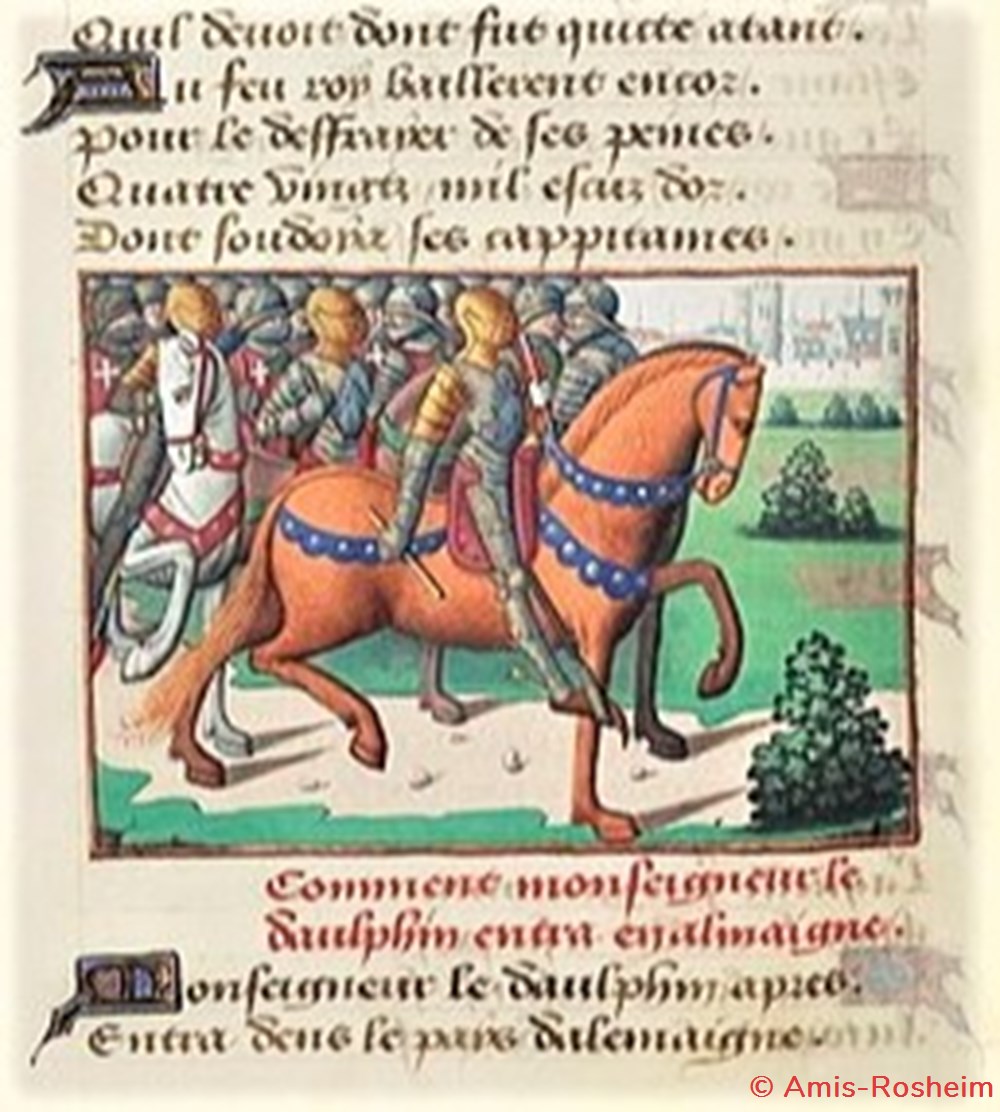 Quil devoit dont fut quicte atant.
Au feu roy baillerent encor.
Pour le deffraier de ses peines.
Quatre vingtz mil escuz dor.
Dont soudoia ses cappitaines.
Comment monseigneur le
daulphin entra en almaigne.
Monseigneur le daulphin apres.
Entra dens le pais dalemaigne.
© Amis-Rosheim